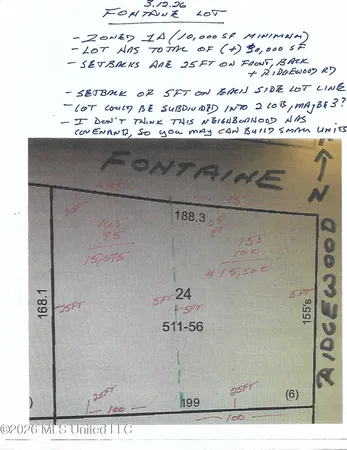 3.12.26
FONTAINE LOT
- ZONED 1A (10,000 SF MINIMUM)
- LOT HAS TOTAL OF (+) 30,000 SF
- SETBACKS ARE 25FT ON FRONT, BACK
+ RIDGEWOOD RD
- SETBACK OR 5FT ON EACH SIDE LOT LINE
- LOT COULD BE SUBDIVIDED INTO 2 LOTS, MAYBE 3?
- I DON'T THINK THIS NEIGHBORHOOD HAS
COVENANT, SO YOU MAY CAN BUILD SMALL UNITS
FONTAINE
188.3
25
25
163
95
15,675
155
100
15,500
168.1
25FT
5FT
24
5FT
5FT
155's
511-56
RIDGEWOOD
25FT
25FT
(6)
100
199
100
©2026 MLS United LLC